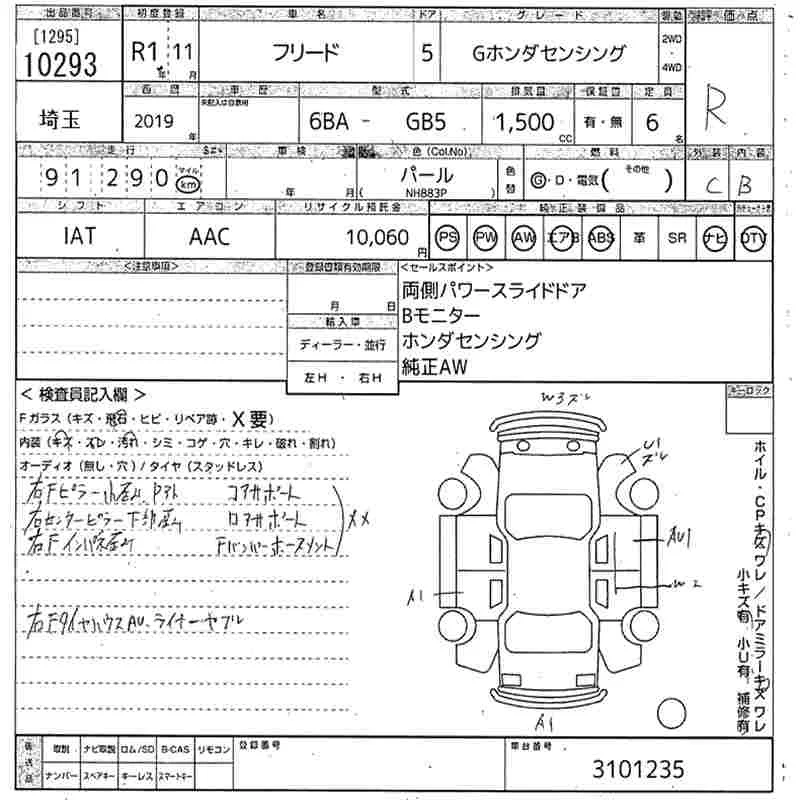 出品番号 初度登録 車名 ドア グレード 駆動 評価点
[1295]
10293
R1 年 11 月
フリード
5
Gホンダセンシング
2WD
・
4WD
R
西暦 車歴 型式 排気量 保証書 定員
埼玉
2019 年
未記入は自家用
6BA - GB5
1,500 cc
有・無
6 名
走行 車検 色(Col.No) 燃料 外装 内装
91,290 マイル km
年 月
パール
( NH883P )
色替
G・D・電気( その他 )
C B
シフト エアコン リサイクル預託金 純正装備品
IAT AAC 10,060 円
PS PW AW エアB ABS 革 SR ナビ DTV
<注意事項> 登録書類有効期限 <セールスポイント>
月 日
輸入車
ディーラー・並行
左H ・ 右H
両側パワースライドドア
Bモニター
ホンダセンシング
純正AW
<検査員記入欄>
Fガラス(キズ・飛石・ヒビ・リペア跡・X要)
内装(キズ・スレ・汚れ・シミ・コゲ・穴・キレ・破れ・割れ)
オーディオ(無し・穴)/タイヤ(スタッドレス)
右Fピラー コアサポート
右センターピラー下部 ロアサポート
右Fインパネ Fバンパーホースメント
メメ
右FタイヤハウスAU、ライナーヤブレ
W3ズレ
U1
ズレ
AU1
W2
A1
A1
ホイル・CPキズワレ/ドアミラーキズワレ
小キズ有 小U有 補修有
後送品
取説 ナビ取説 ロム/SD B-CAS リモコン
ナンバー スペアキー キーレス スマートキー
登録番号
車台番号
3101235